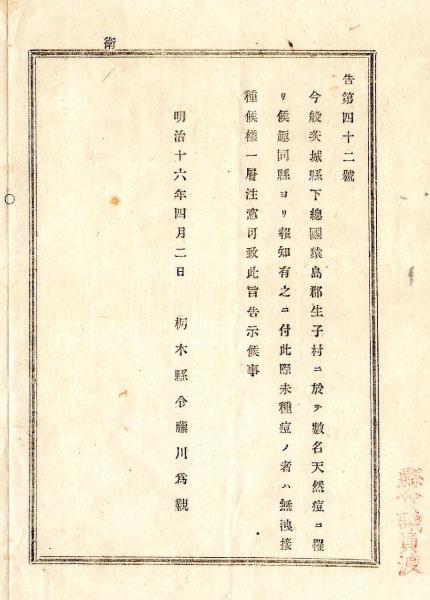 告第四十二號
今般茨城縣下總國猿島郡生子村ニ於テ數名天然痘ニ罹
リ候趣同縣ヨリ報知有之ニ付此際未種痘ノ者ハ無洩接
種候樣一層注意可致此旨告示候事
明治十六年四月二日　栃木縣令藤川爲親
衛
縣會議員渡